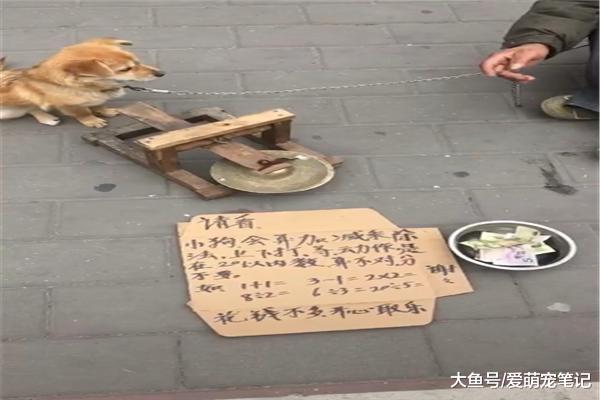 请看
小狗会算加减乘除
法,上下打,等动作是
在20以内数,算不对分
不要.
如 1+1= 3-1= 2×2=
8÷2= 6÷3= 20÷5=
花钱不多开心取乐
大鱼号/爱萌宠笔记